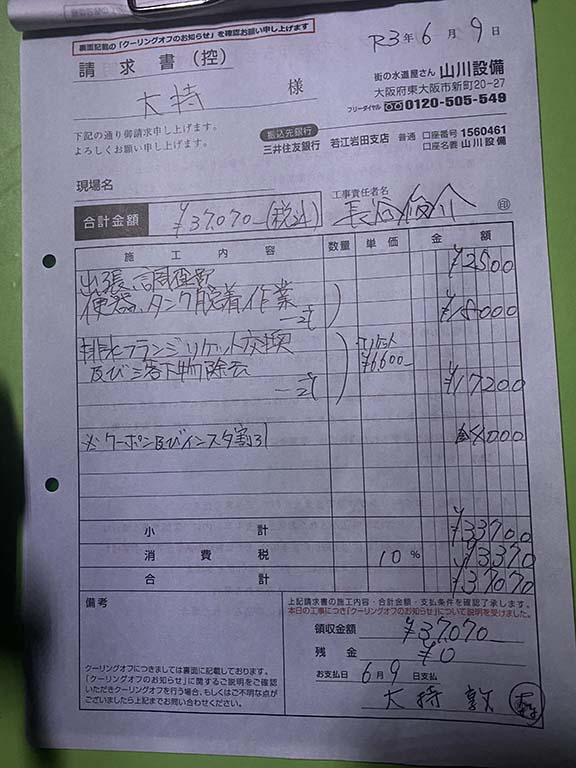 裏面記載の「クーリングオフのお知らせ」を確認お願い申し上げます
R3年6月9日
請求書(控)
大持 様
街の水道屋さん 山川設備
大阪府東大阪市新町20-27
フリーダイヤル 0120-505-549
下記の通り御請求申し上げます。
よろしくお願い申し上げます。
振込先銀行
三井住友銀行 若江岩田支店 普通 口座番号 1560461
口座名義 山川設備
現場名
工事責任者名
合計金額 ¥37070-(税込)
印
施工内容 数量 単価 金額
出張、調査費 ¥2500
便器、タンク脱着作業 ¥18000
一式
排水フランジ、
交換
及び落下物除去 ¥6600- ¥17200
一式
※クーポン及びインスタ割引 4000
小計 ¥33700
消費税 10% ¥3370
合計 ¥37070
備考
上記請求書の施工内容・合計金額・支払条件を確認了承します。
本日の工事につき「クーリングオフのお知らせ」について説明を受けました。
領収金額 ¥37070
残金 ¥0
お支払日 6月9日支払
大持 敦
クーリングオフにつきましては裏面に記載しております。
「クーリングオフのお知らせ」に関するご説明をご確認
いただきクーリングオフを行う場合、もしくはご不明な点が
ございましたら上記までお問い合わせください。